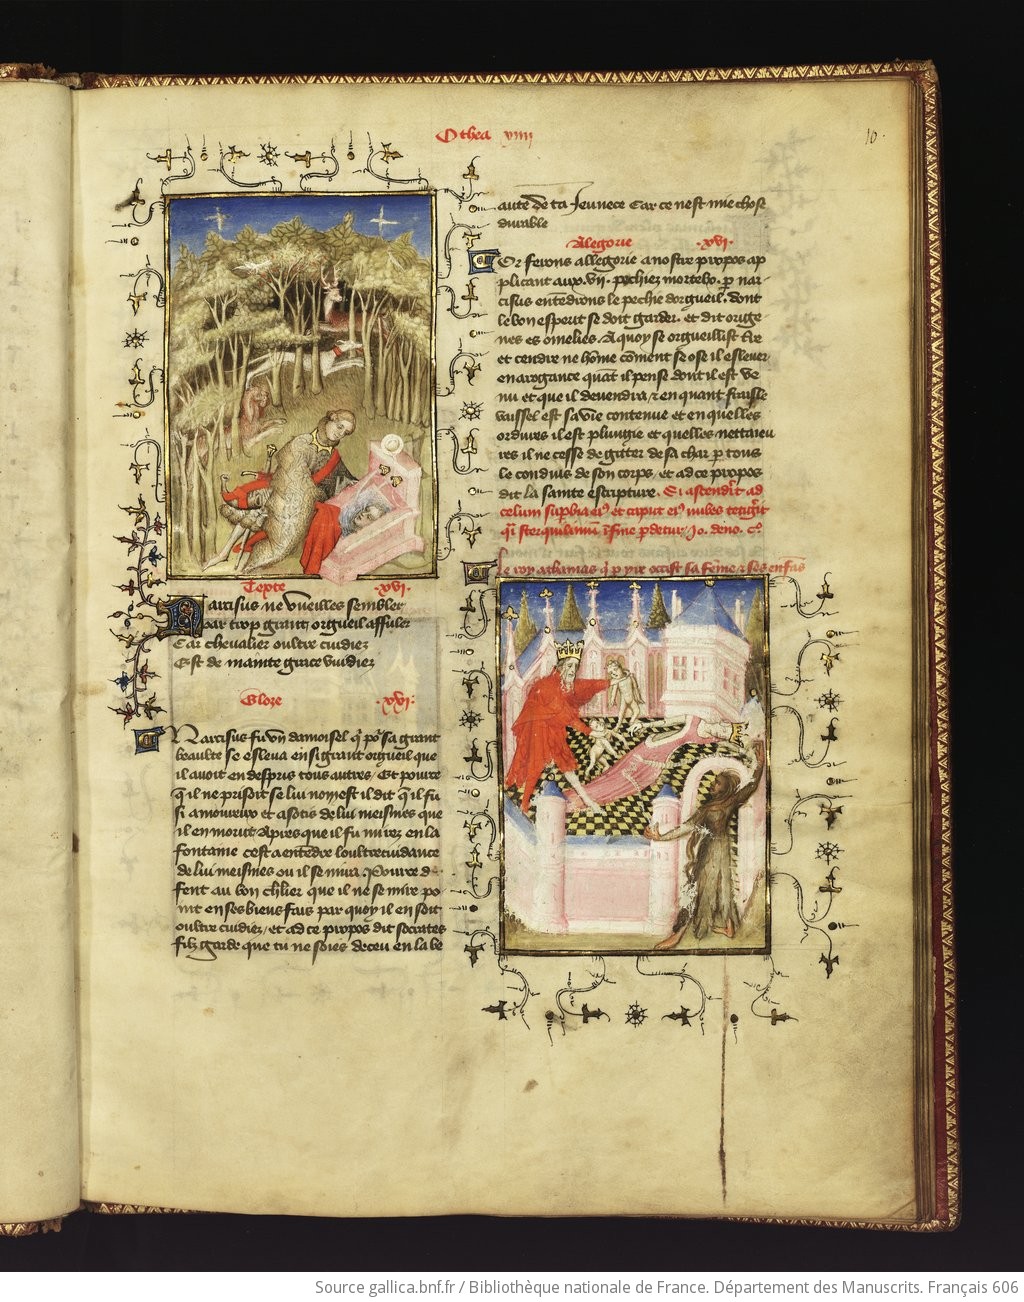 Othea viiij
10.
Texte .xvi.
Narcisus ne vueilles sembler
par trop grant orgueil affuler
Car chevalier oultre cuidiez
Est de mainte grace vuidiez
Glose .xvi.
Narcisus fu un damoisel q̄ poʳ sa grant
beaulte se esleva en si grant orgueil que
il avoit en despris tous autres / Et pource
q̄ il ne prisoit se lui non est il dit q̄ il fu
si amoureux et asotis de lui meismes que
il en morut Apres que il fu mirez en la
fontaine cest a entēdre loultrecuidance
de lui meismes ou il se mira. Pource def
fent au bon chl̄ier que il ne se mire po
int en ses biens fais par quoy il en soit
oultre cuidiez / et ad ce propos dit socrates
filz garde que tu ne soies deceu en la be
aute de ta Jeunece Car ce nest mie chose
durable
Alegorie .xvi.
Or ferons allegorie a nostre propos ap
plicant aux .vii. pechiez mortelx. p̱ nar
cisus entēdrons le pechie dorgueil. dont
le bon esperit se doit garder. et dit orige
nes es omelies. A quoy se orgueillist t̄re
et cendre ne hōme cōment se ose il eslever
en arogance quāt il pense dont il est ve
nu et que il devendra / et en quant fraisle
vaissel est sa vie contenue et en quelles
ordures il est plungie et quelles nettaieu
res il ne cesse de gitter de sa char p̱ tous
les conduis de son corps / et ad ce propos
dit la sainte escripture. Si ascenderit ad
celum supbia eiꝰ et caput eiꝰ nubes tetigit
q̄i sterquilinium ī fine pdetur Jo. xx. c.
Le roy athamas q̄ p yre occist sa fēme et ses enfās
Source gallica.bnf.fr / Bibliothèque nationale de France. Département des Manuscrits. Français 606